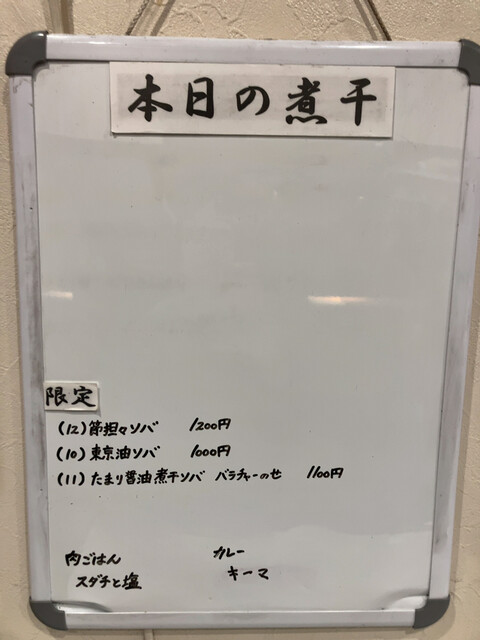 本日の煮干
限定
(12)節担々ソバ 1200円
(10)東京油ソバ 1000円
(11)たまり醤油煮干ソバ バラチャーのせ 1100円
肉ごはん カレー
スダチと塩 キーマ